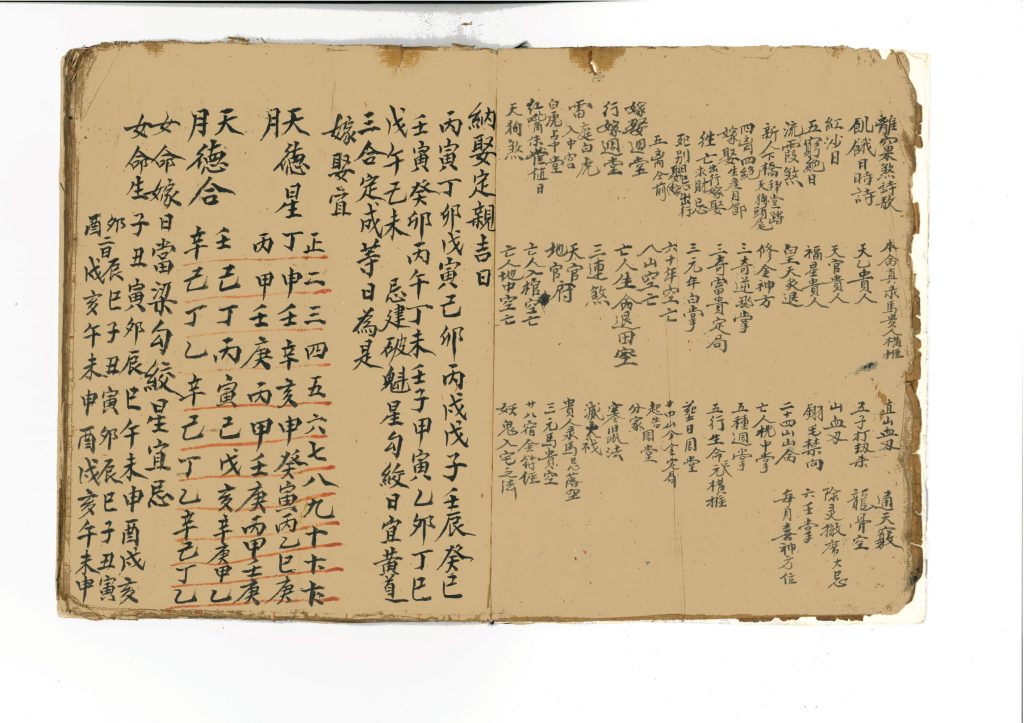 離窠煞詩歌
飢餓日時詩
紅沙日
五窮絕日
流霞煞
新人下橋拜堂踏天狗頭尾
四離四絕
嫁娶生產月節
徃亡出行嫁娶求財忌
死別嫁娶忌出行
五离仝前
嫁娶週堂
行嫁週堂
雷庭白虎
入中宮
白虎占堂
紅嘴朱雀值日
天狗煞
本命真祿馬貴人橫推
天乙貴人
天官貴人
福星貴人
皇天炙退
修金神方
三奇逆發掌
三奇富貴定局
三元年白掌
六十年空亡
八山空亡
亡人生肖退田室
三連煞
天官府
地官府
亡人入棺空亡
亡人地中空亡
真山血刃
五子打劫杀
山血刃
翎毛禁向
二十四山山命
亡人枕中掌
五種週掌
五行生命元橫推
塟日周堂
廿四山分金定局
起吉
分家周堂
寒鼠法
滅火
貴人祿馬忌落空
三元馬貴空
廿八宿金符經
妖鬼入宅之法
通天竅
龍骨空
除灵撤磨大忌
六壬掌
每月喜神方位
納娶定親吉日
丙寅丁卯戊寅己卯丙戌戊子壬辰癸巳
壬寅癸卯丙午丁未壬子甲寅乙卯丁巳
戊午己未 忌建破魁星勾絞日宜黃道
三合定成等日為是
嫁娶宜
正二三四五六七八九十十一十二
天德星丁申壬辛亥甲癸寅丙乙巳庚
月 丙甲壬庚丙甲壬庚丙甲壬庚
天德合 壬己丁丙寅己戊亥辛庚甲乙
月 辛己丁乙辛己丁乙辛己丁乙
女命嫁日當梁勾絞星宜忌
女命生子丑寅卯辰巳午未申酉戌亥
卯辰巳子丑寅卯辰巳子丑寅
酉戌亥午未申酉戌亥午未申